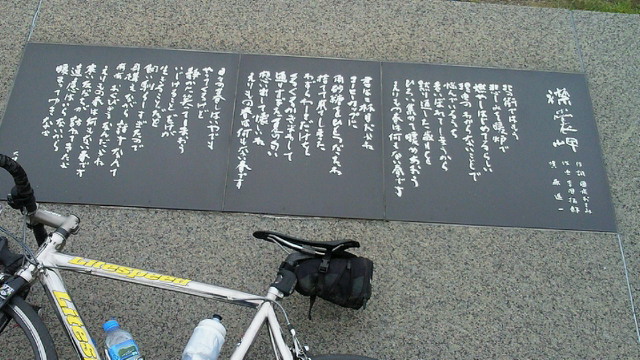 襟裳岬
作詞 岡本おさみ
作曲 吉田拓郎
唄 森進一
北の街ではもう
悲しみを暖炉で
燃やしはじめてるらしい
理由のわからないことで
悩んでいるうち
老いぼれてしまうから
黙り通した歳月を
ひろい集めて暖めあおう
えりもの春は何もない春です
君は二杯目だよね
コーヒーカップに
角砂糖をひとつだったね
捨てて来てしまった
わずらわしさだけを
くるくるかきまわして
通りすぎた夏の匂い
想い出して懐しいね
えりもの春は何もない春です
日々の暮しはいやでも
やってくるけど
静かに笑ってしまおう
いじけることだけが
生きることだと
飼い馴らしすぎたので
身構えながら話すなんて
ああ おくびょうなんだよね
えりもの春は何もない春です
寒い友だちが訪ねてきたよ
遠慮はいらないから
暖まってゆきなよ
Litespeed
Lites